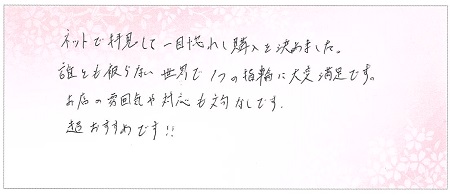 ネットで拝見して一目惚れし購入を決めました。
誰とも被らない世界で1つの指輪に大変満足です。
お店の雰囲気や対応も文句なしです.
超おすすめです!!